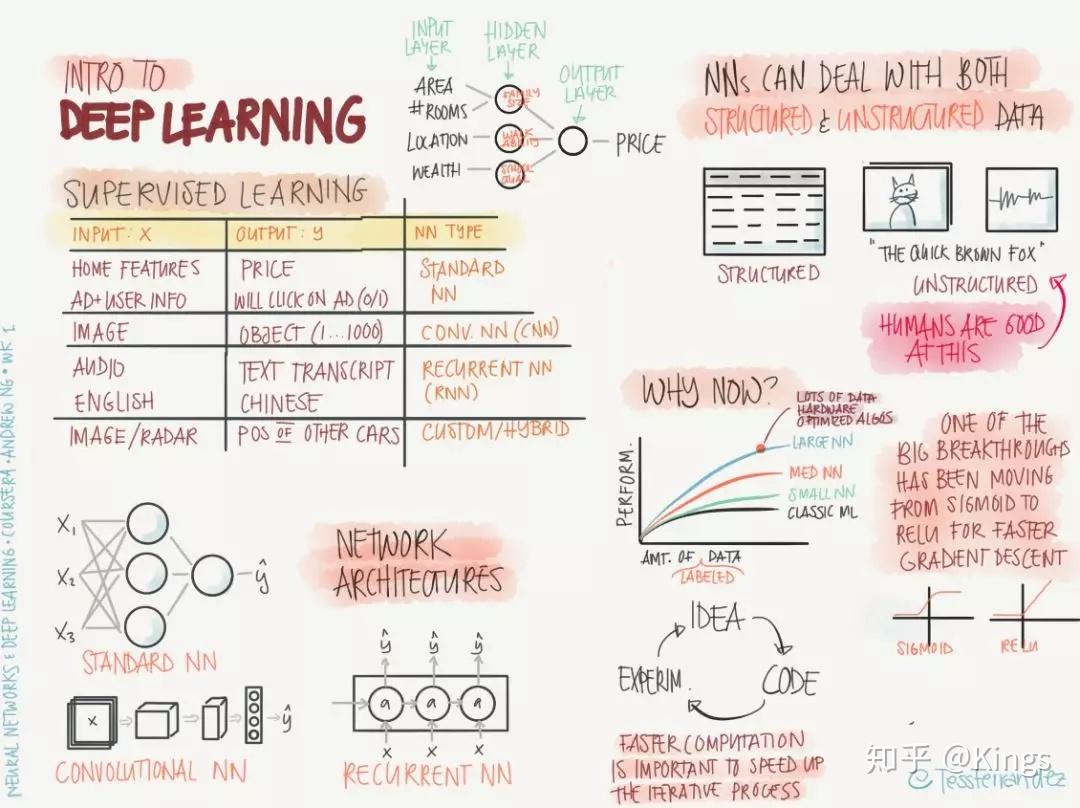 INTRO TO
DEEP LEARNING
INPUT LAYER
HIDDEN LAYER
OUTPUT LAYER
AREA
#ROOMS
LOCATION
WEALTH
FAMILY SIZE
WALK ABILITY
SCHOOL QUAL
PRICE
SUPERVISED LEARNING
INPUT: X OUTPUT: y NN TYPE
HOME FEATURES PRICE STANDARD
AD+USER INFO WILL CLICK ON AD (0/1) NN
IMAGE OBJECT (1...1000) CONV. NN (CNN)
AUDIO TEXT TRANSCRIPT RECURRENT NN
ENGLISH CHINESE (RNN)
IMAGE/RADAR POS OF OTHER CARS CUSTOM/HYBRID
NNs CAN DEAL WITH BOTH
STRUCTURED & UNSTRUCTURED DATA
STRUCTURED
"THE QUICK BROWN FOX"
UNSTRUCTURED
HUMANS ARE GOOD
AT THIS
WHY NOW?
LOTS OF DATA
HARDWARE
OPTIMIZED ALGOS
LARGE NN
MED NN
SMALL NN
CLASSIC ML
PERFORM.
AMT. OF DATA
LABELED
ONE OF THE
BIG BREAKTHROUGHS
HAS BEEN MOVING
FROM SIGMOID TO
RELU FOR FASTER
GRADIENT DESCENT
SIGMOID
RELU
IDEA
CODE
EXPERIM.
FASTER COMPUTATION
IS IMPORTANT TO SPEED UP
THE ITERATIVE PROCESS
X₁
X₂
X₃
ŷ
STANDARD NN
NETWORK
ARCHITECTURES
x
ŷ
CONVOLUTIONAL NN
ŷ ŷ ŷ
a a a
x x x
RECURRENT NN
NEURAL NETWORKS & DEEP LEARNING • COURSERA • ANDREW NG • WK 1
知乎 @Kings
© TessFernandez